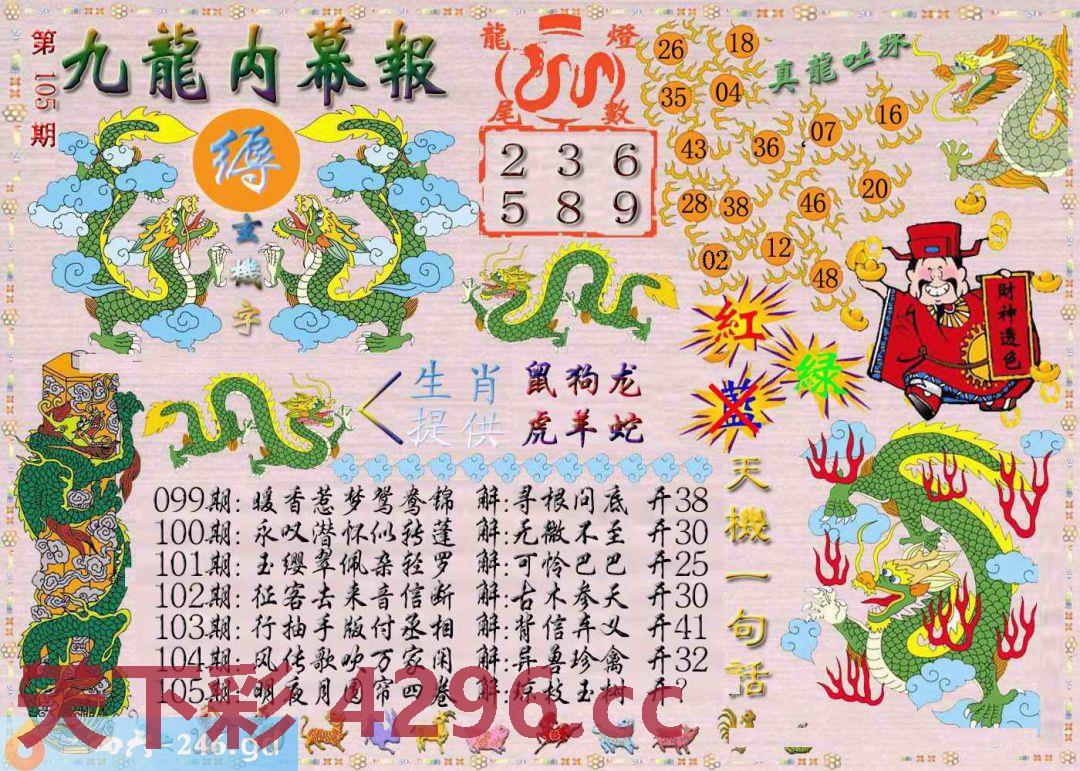 第105期
九龍内幕報
縟
玄機字
龍燈
尾數
2 3 6
5 8 9
26 18
35 04
43 36 07 16
28 38 46 20
02 12 48
真龍吐珠
財神透色
紅
绿
藍
生肖提供
鼠狗龙
虎羊蛇
天機一句話
099期:暖香惹梦鸳鸯锦 解:寻根问底 开38
100期:永叹潜怀似转蓬 解:无微不至 开30
101期:玉缨翠佩杂轻罗 解:可怜巴巴 开25
102期:征客去来音信断 解:古木参天 开30
103期:行抽手版付丞相 解:背信弃义 开41
104期:风传歌吹万家闲 解:异兽珍禽 开32
105期:明夜月圆帘四卷 解:琼枝玉树 开?
天下彩 4296.cc
246.gd